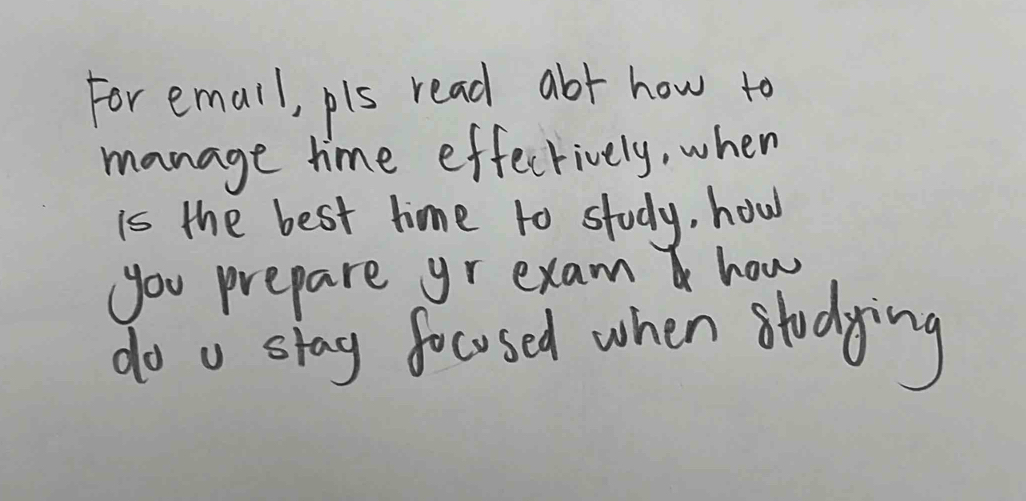 For email, pls read abt how to
manage time effectively, when
is the best time to study, how
you prepare yr exam & how
do u stay focused when studying